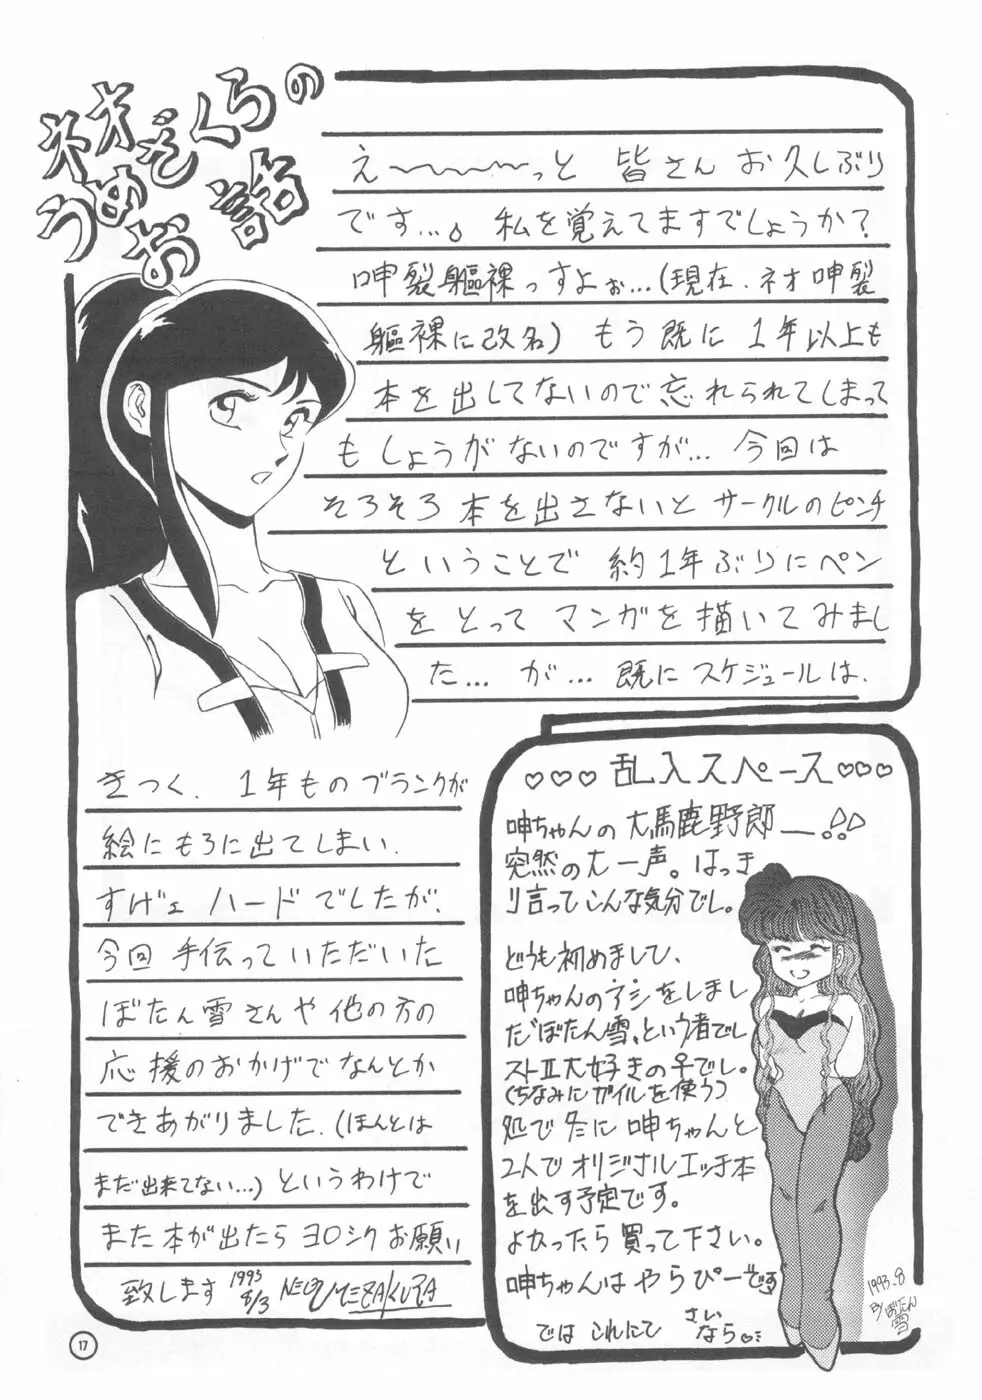 ネオ
うめぞくらの
お話
え〜〜〜っと 皆さん お久しぶり
です…。私を覚えてますでしょうか?
呻裂軀裸っすよぉ…(現在、ネオ呻裂
軀裸に改名) もう既に 1年以上も
本を出してないので忘れられてしまって
もしょうがないのですが… 今回は
そろそろ本を出さないと サークルのピンチ
ということで 約1年ぶりにペン
をとって マンガを描いてみまし
た… が… 既に スケジュールは、
きつく、1年ものブランクが
絵にもろに出てしまい、
すげェ ハードでしたが、
今回 手伝っていただいた
ぼたん雪さんや他の方の
応援のおかげでなんとか
できあがりました。(ほんとは
まだ出来てない…) というわけで
また本が出たら ヨロシク お願い
致します 1993 8/3 NEO UMEZAKURA
♡♡♡ 乱入スペース ♡♡♡
呻ちゃんの大馬鹿野郎ー!!
突然の大一声。はっき
り言ってこんな気分でし。
どうも初めまして、
呻ちゃんのアシをしまし
た゛ぼたん雪、という者でし
ストⅡ大好きの子でし。
(ちなみにガイルを使う)
処で冬に 呻ちゃんと
2人で オリジナルエッチ本
を出す予定です。
よかったら 買って下さい。
呻ちゃんは やらぴーです
では これにて
さい
なら♡…
1993.8
By ぼたん
雪
17